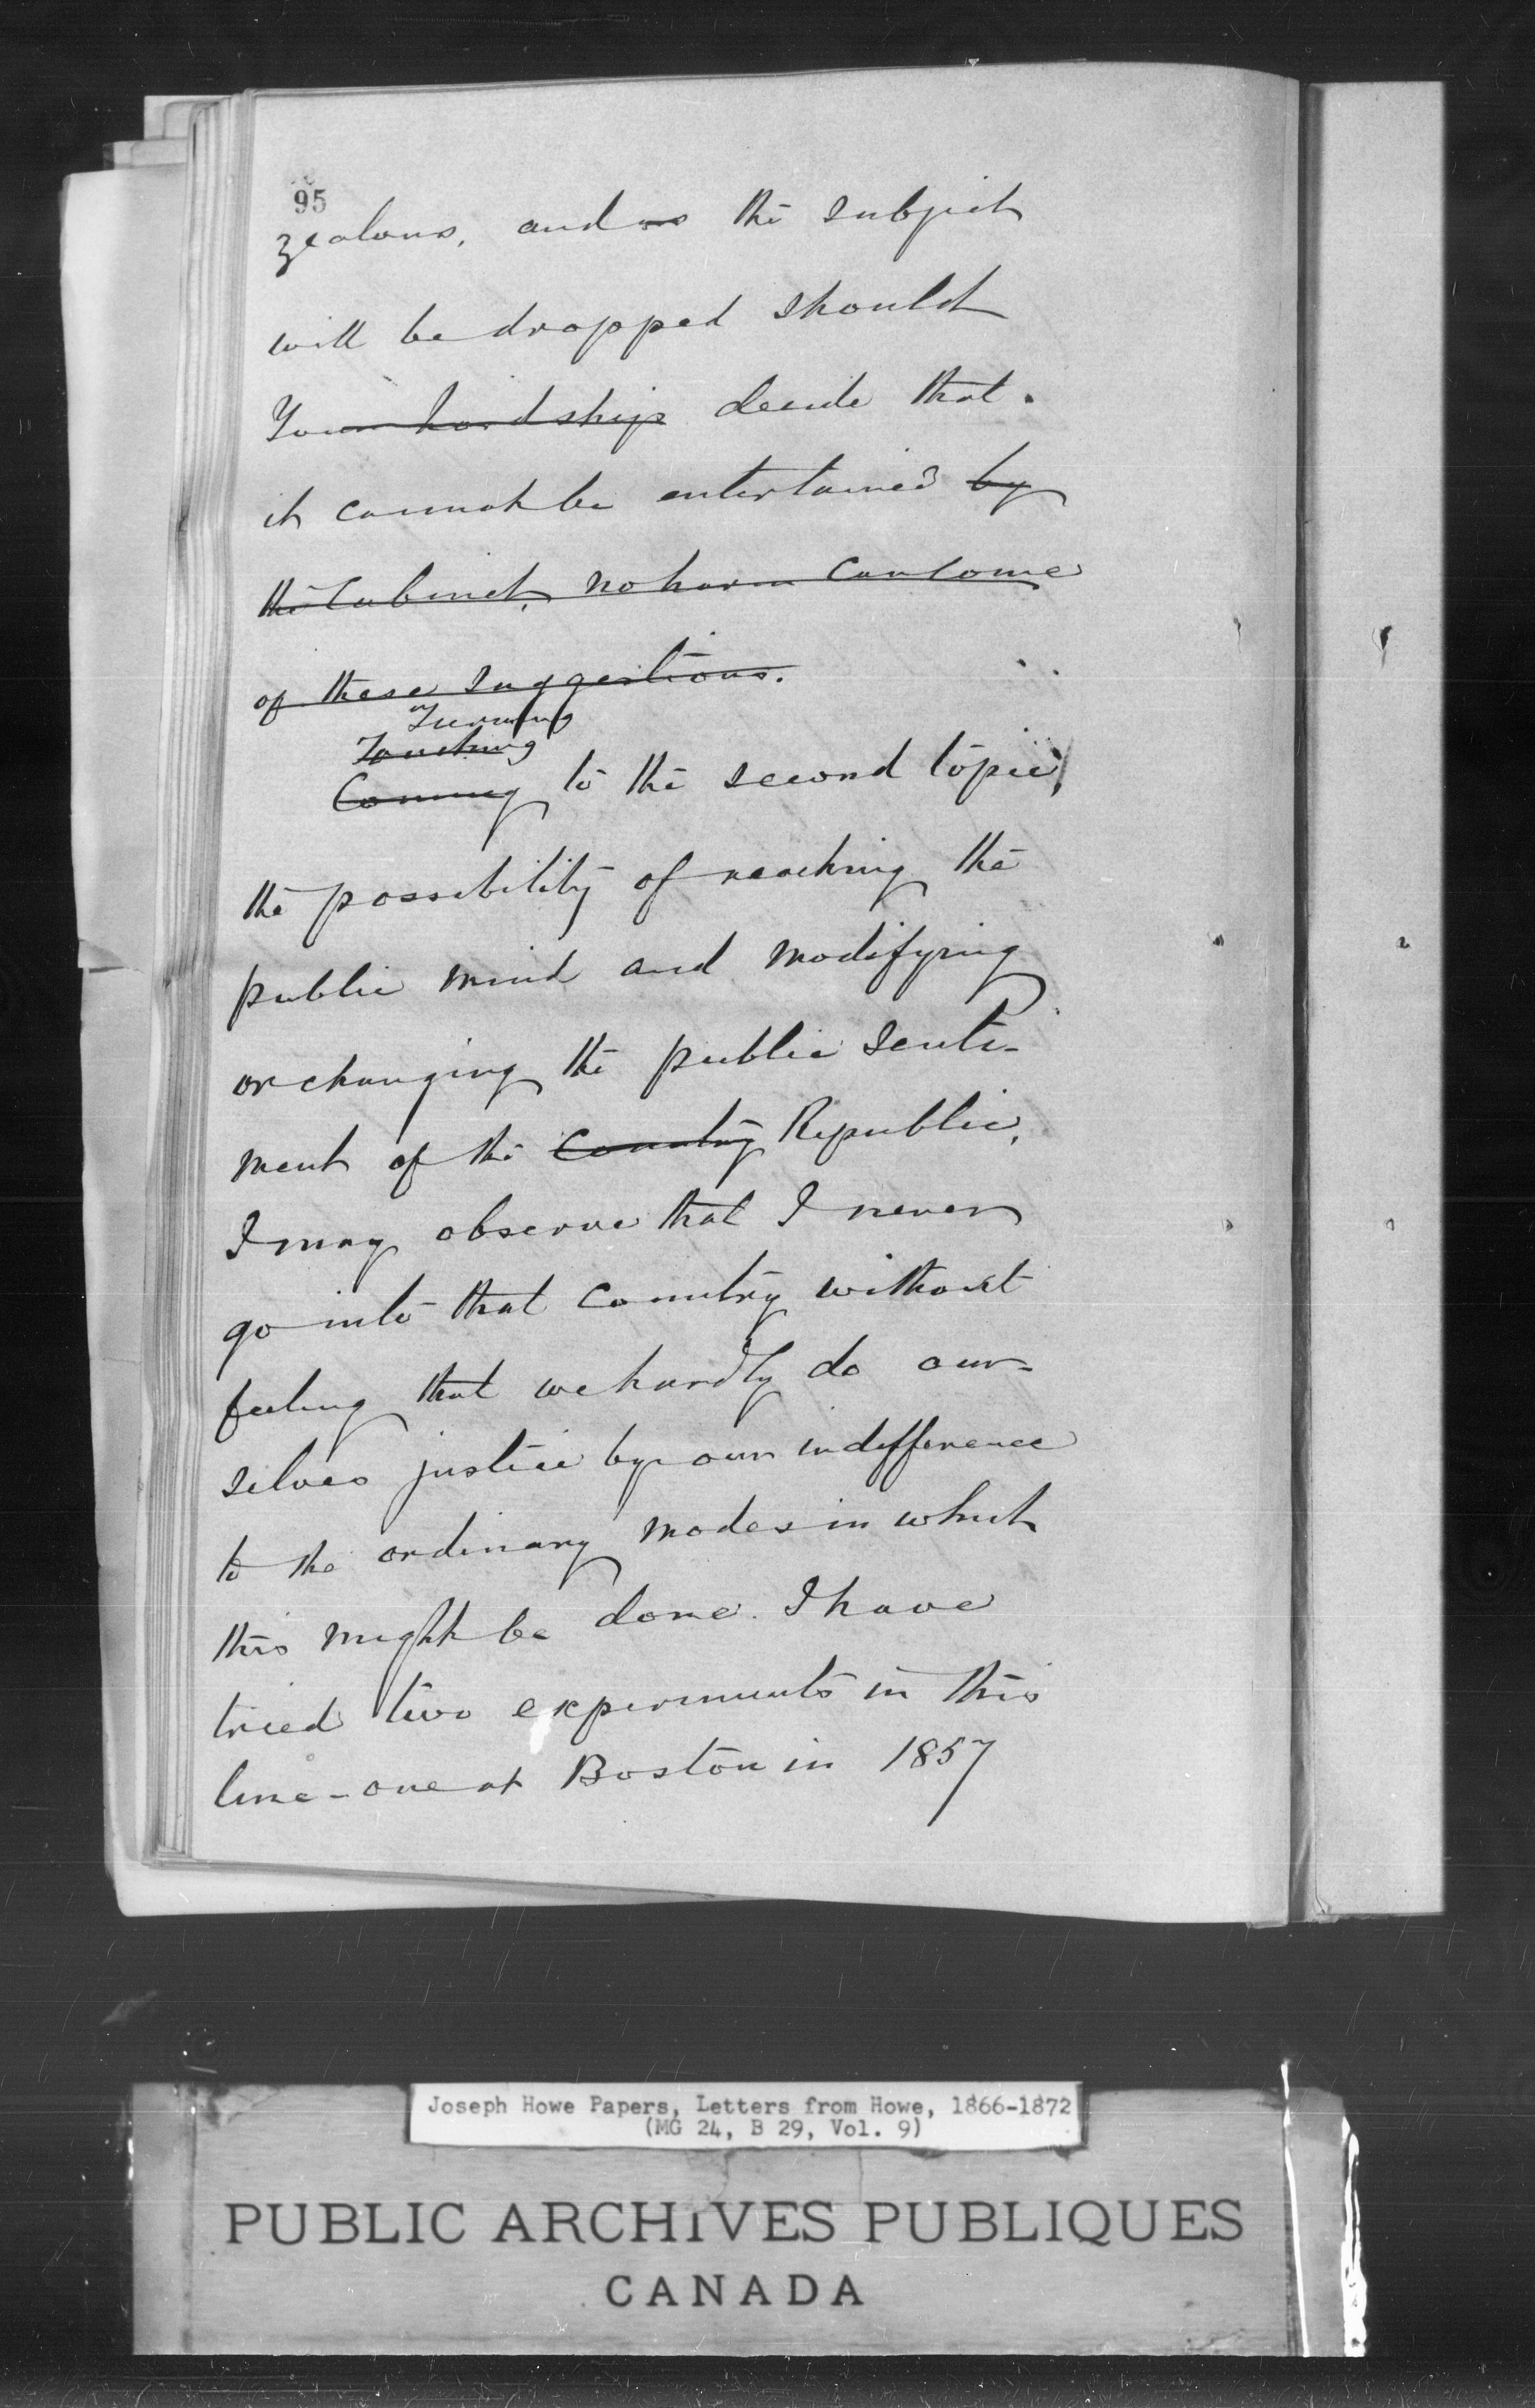 95
zealous, and as the subject
will be dropped should
Your Lordship decide that
it cannot be entertained by
the Cabinet, no harm can come
of these suggestions.
Turning
Touching
Coming to the second topic,
the possibility of reaching the
public mind and modifying
or changing the public senti-
ment of the Country Republic,
I may observe that I never
go into that Country without
feeling that we hardly do our-
selves justice by our indifference
to the ordinary modes in which
this might be done. I have
tried two experiments in this
line - one at Boston in 1857
Joseph Howe Papers, Letters from Howe, 1866-1872
(MG 24, B 29, Vol. 9)
PUBLIC ARCHIVES PUBLIQUES
CANADA